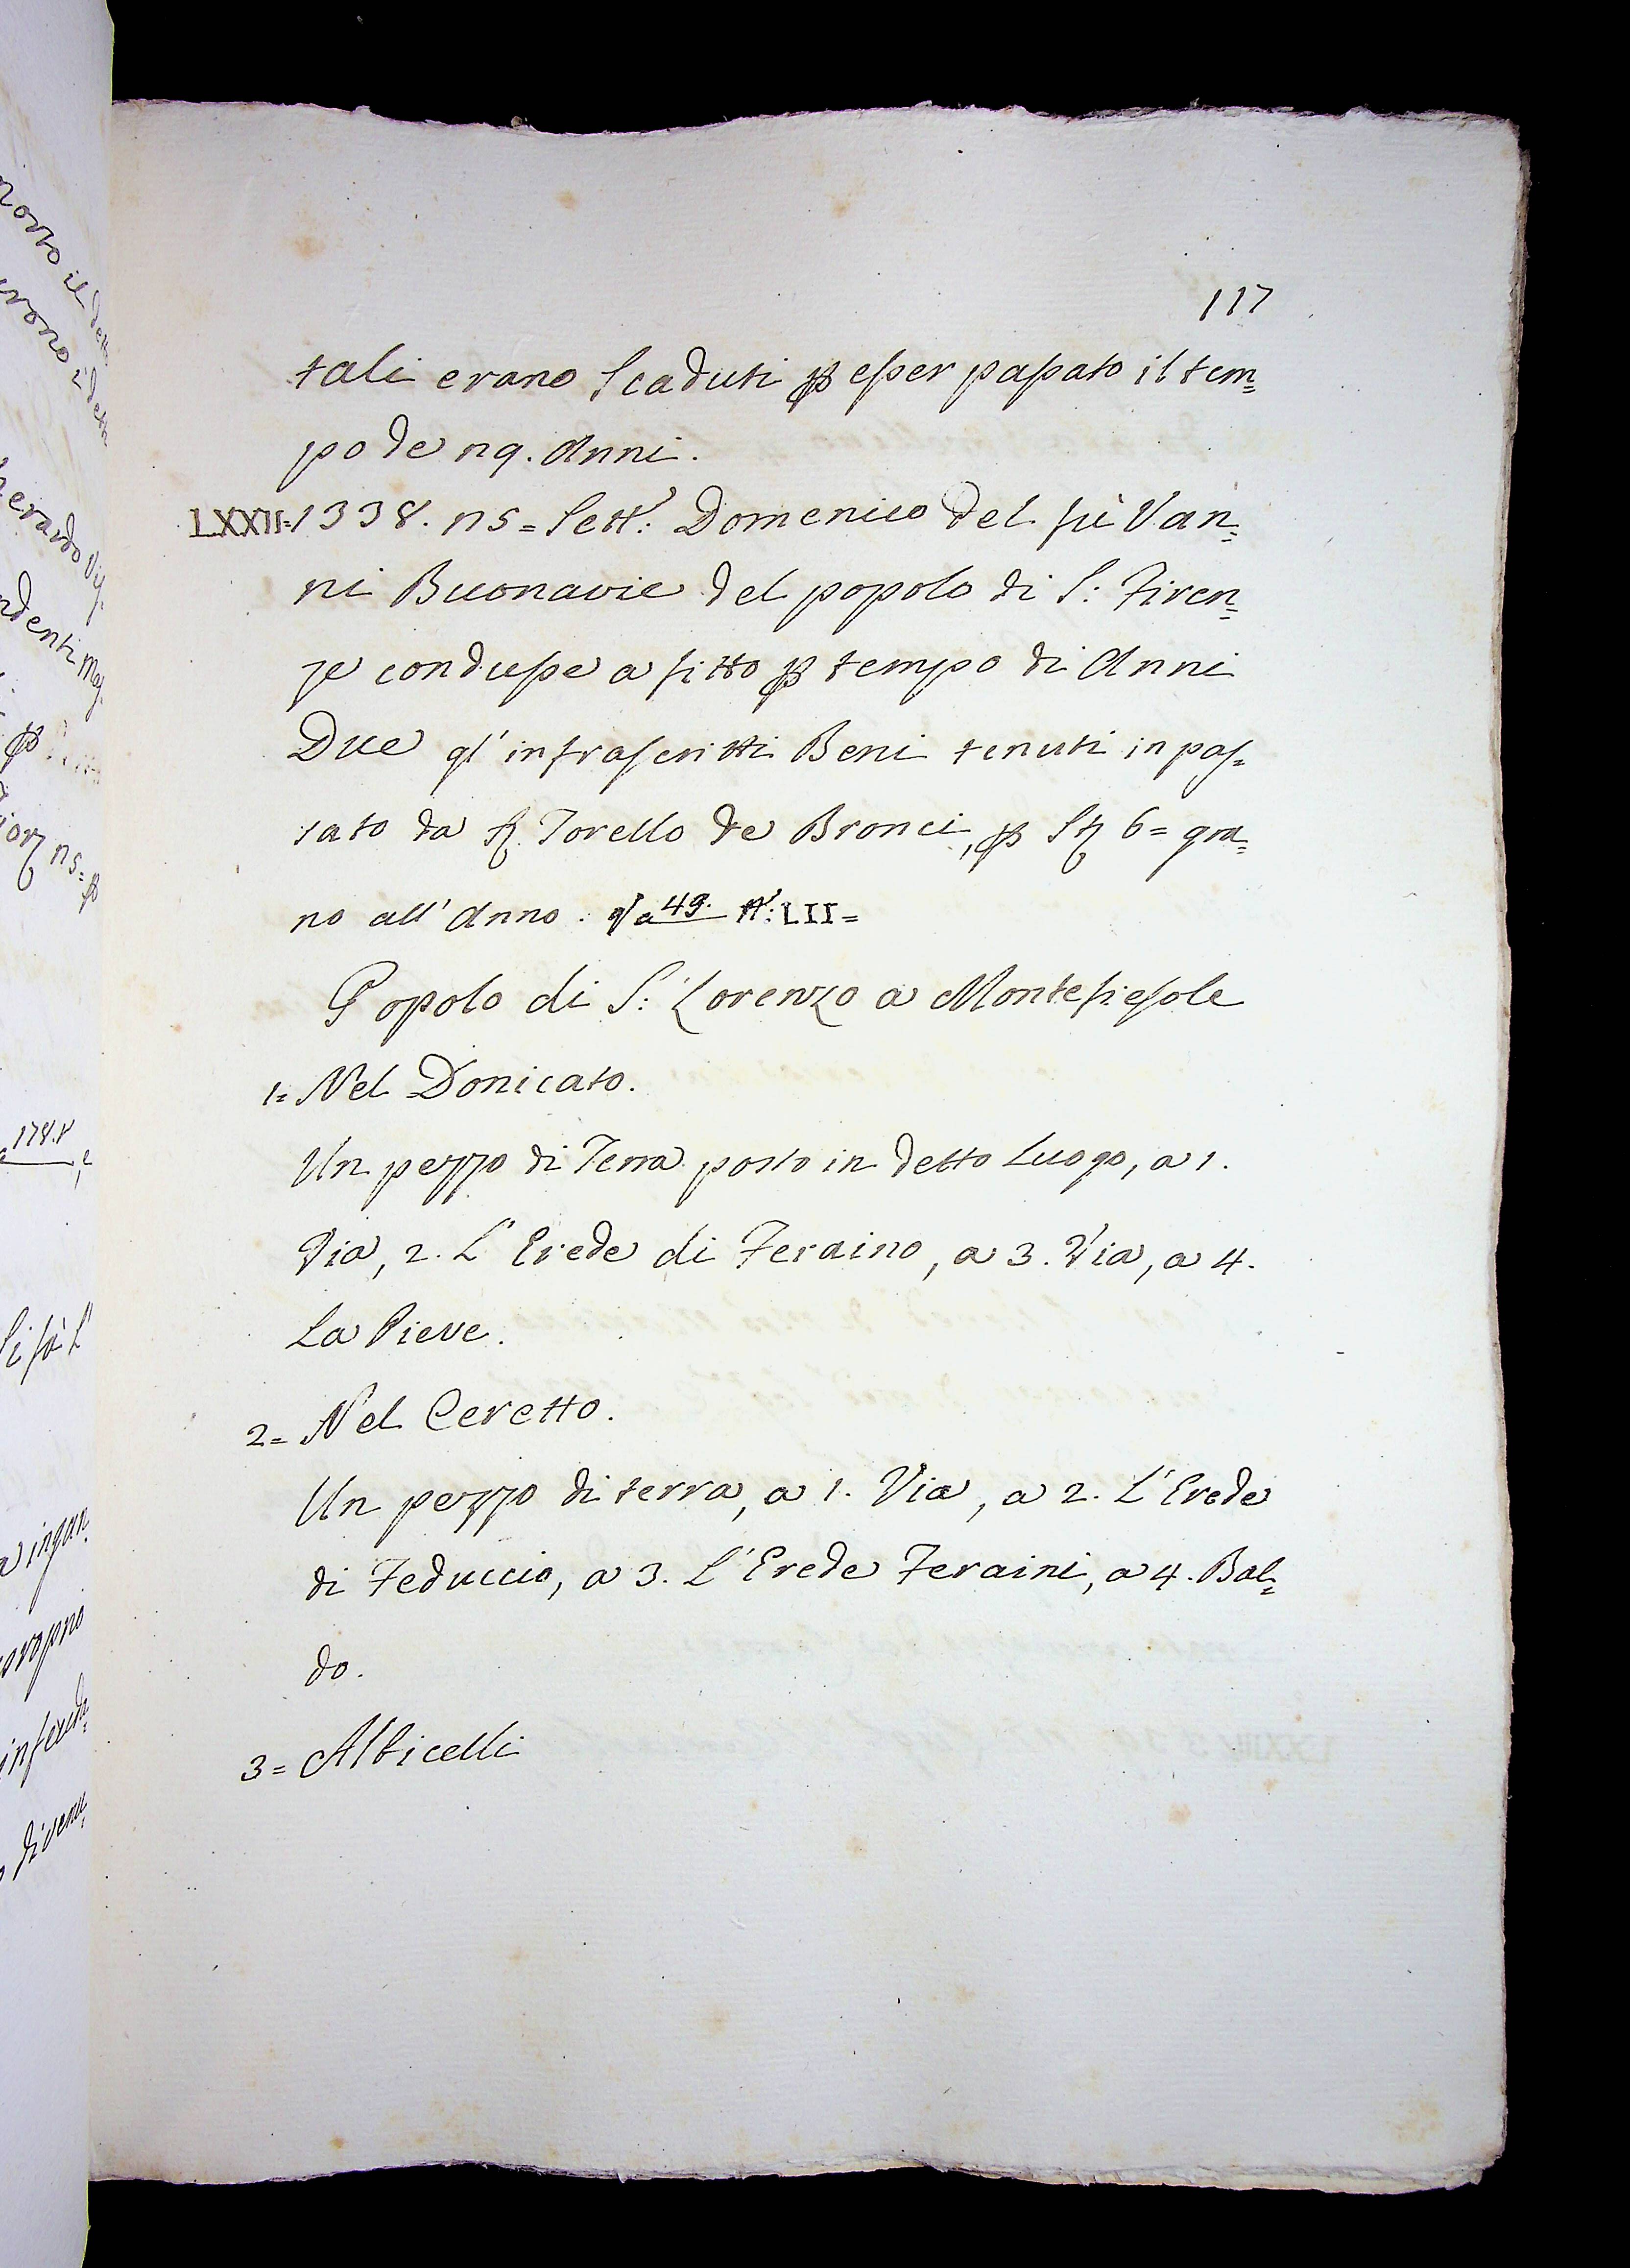 117
tali erano Scaduti p esser passato il tem=
po de 29. Anni.
LXXII=1338. 25= Sett: Domenico del fù Van=
ni Buonavie del popolo di S: Firen=
ze condusse a fitto p tempo di Anni
Due gl' infrascritti Beni tenuti in pas=
sato da Torello de Bronci, p St 6= gra=
no all' Anno. Va 49. N: LII=
Popolo di S: Lorenzo a Montefiesole
1= Nel Donicato.
Un pezzo di Terra posto in detto Luogo, a 1.
Via, 2. L' Erede di Feraino, a 3. Via, a 4.
La Pieve.
2= Nel Ceretto.
Un pezzo di terra, a 1. Via, a 2. L' Erede
di Feduccio, a 3. L' Erede Feraini, a 4. Bal=
do.
3= Albicelli